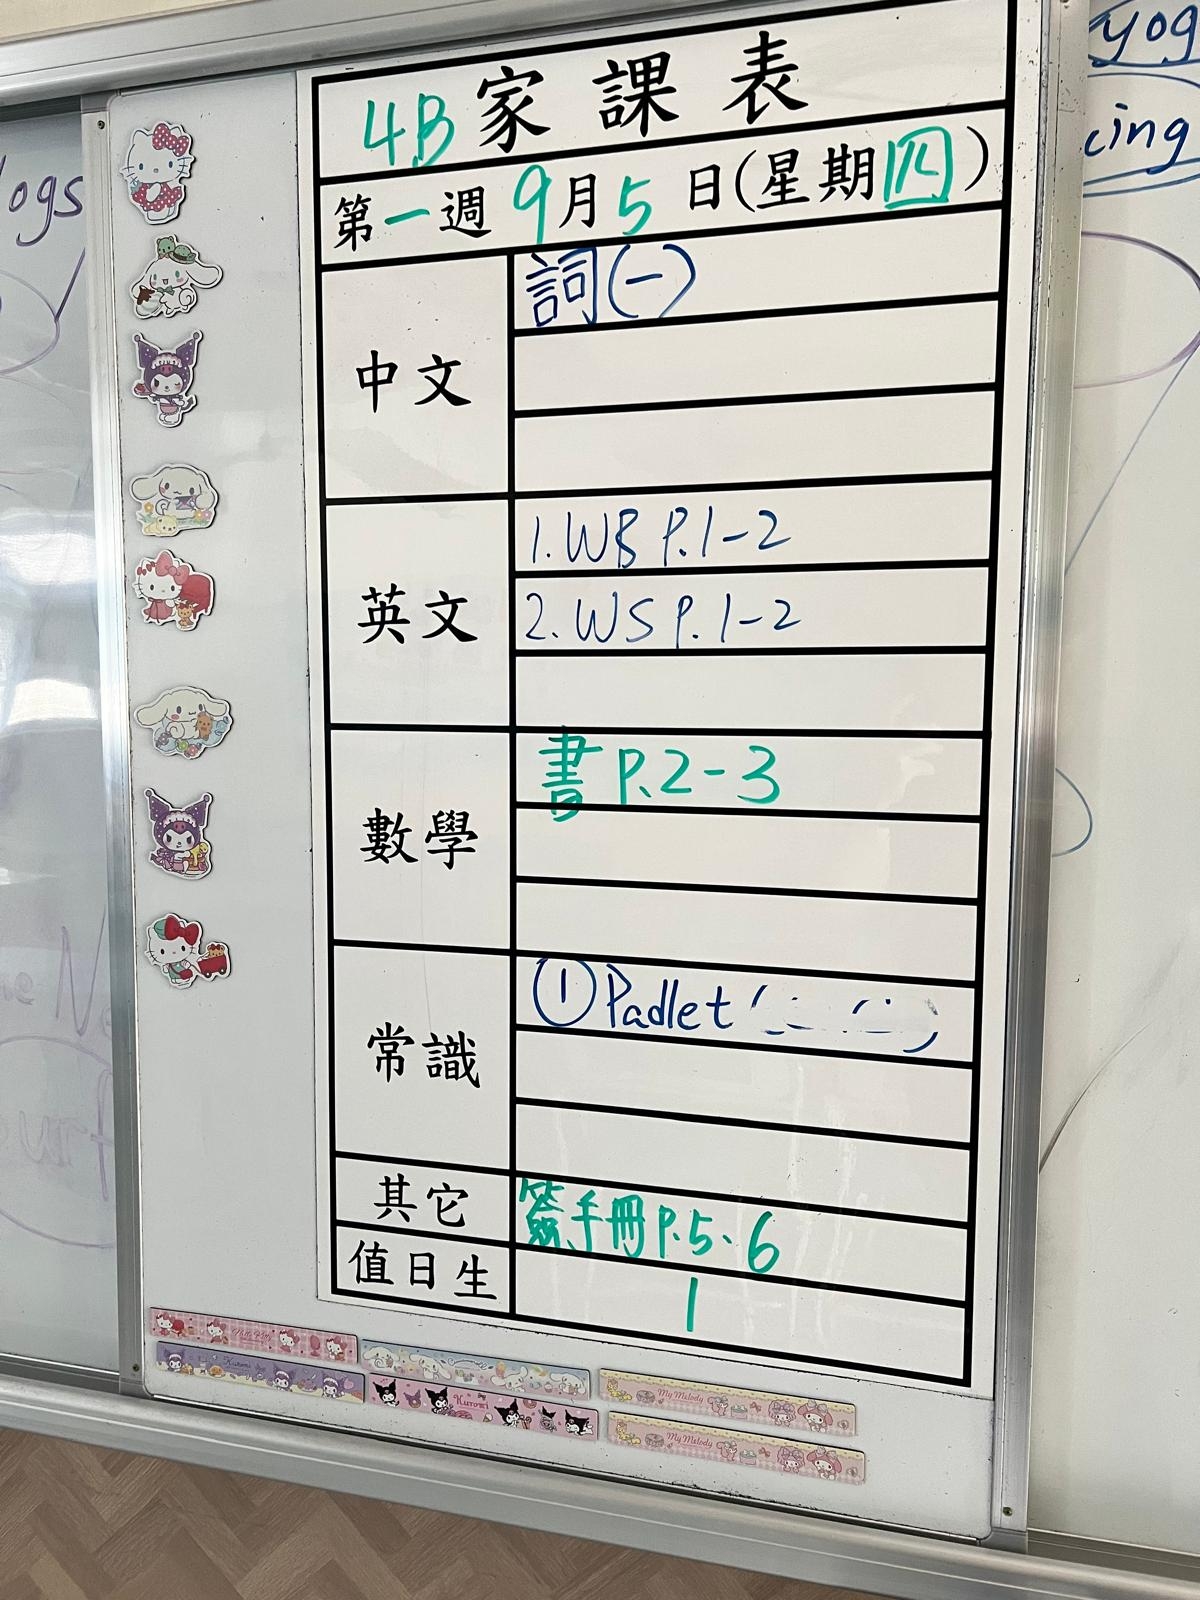 4B家課表
第一週 9月5日(星期四)
中文
詞(一)
英文
1. WB P.1-2
2. WS P.1-2
數學
書 P.2-3
常識
① Padlet
其它
簽手冊 P.5、6
值日生
1
logs
yog
cing
Kuromi
Kuromi
My Melody
My Melody